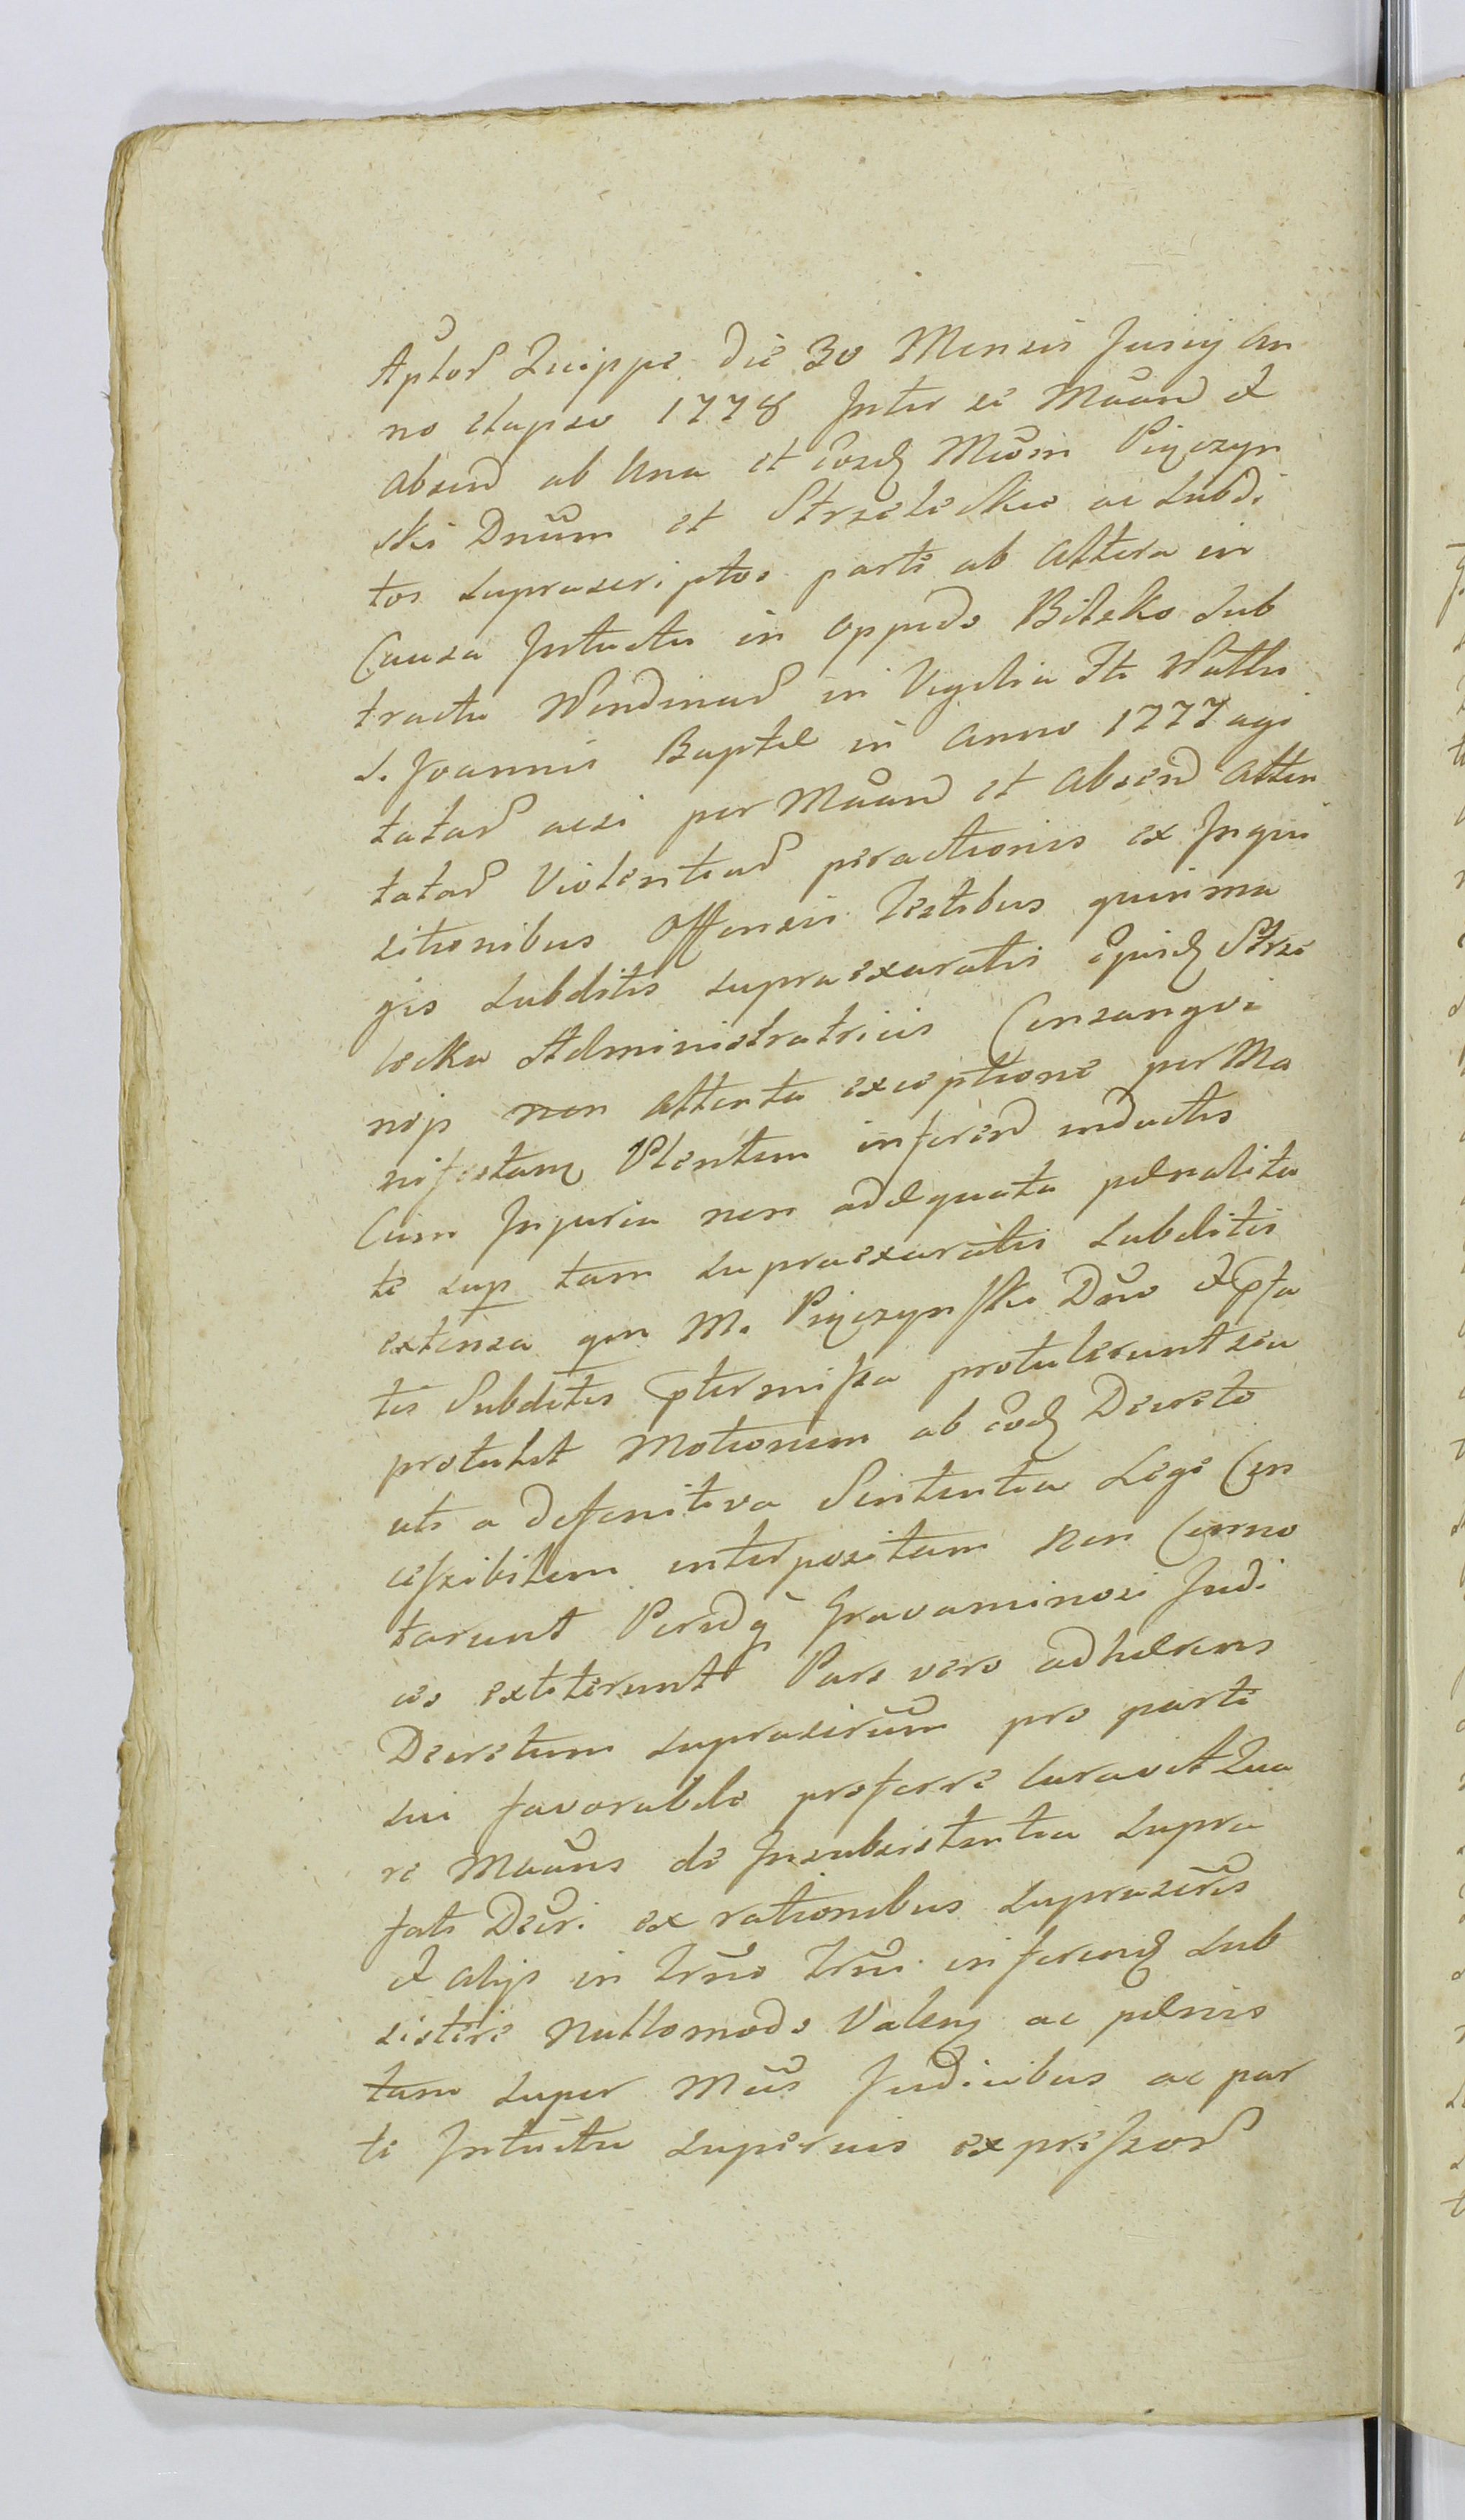 Aptor Quippe die 30 Mensis Junij An
no elapso 1778 Inter se Maand et
absend ab Una et eosd Mcom Pigczyn
ski Dnum et Strzeleckie ac Subdi
tos Suprascriptos parte ab Altera in
Causa Intuitu in oppido Bilsko Sub
tractu Nundinar in Vigilia Fti Nattis
S. Joannis Baptae in Anno 1777 agi
tatar acsi per Maand et absend Atten
tatar Violentiar peractionis ex Inqui
sitionibus Offensis Testibus quin ma
gis Subditis Supraexaratis ejusd Strze
lecka Administratricis Consangvi
nijs non Attenta exceptione per Ma
nifestam Plentem inferend inductis
Cum Injuria non adaequata paenalita
te Sup tam Supraexaratis Subditis
extensa qm M. Pigczynski Dno et Pfa
tis Subditis Ptermissa protulerunt seu
protulit Motionem ab eod Decreto
uti a Definitiva Sententia Lege Con
cessibilem interpositam Non Conno
tarunt Perindq Gravaminosi Judi
ces extiterunt Pars vero adhaerens
Decretum Suprascrum pro parte
sui favorabile proferre Curavit Qua
re Maans de Insubsistentia Supra
fati Decri ex rationibus Suprascris
et alijs in Trno Trni inferend Sub
sistere Nullomodo Valens ac paenis
tam Super Mcis Judicibus ac par
te Intuitu Superius expressor